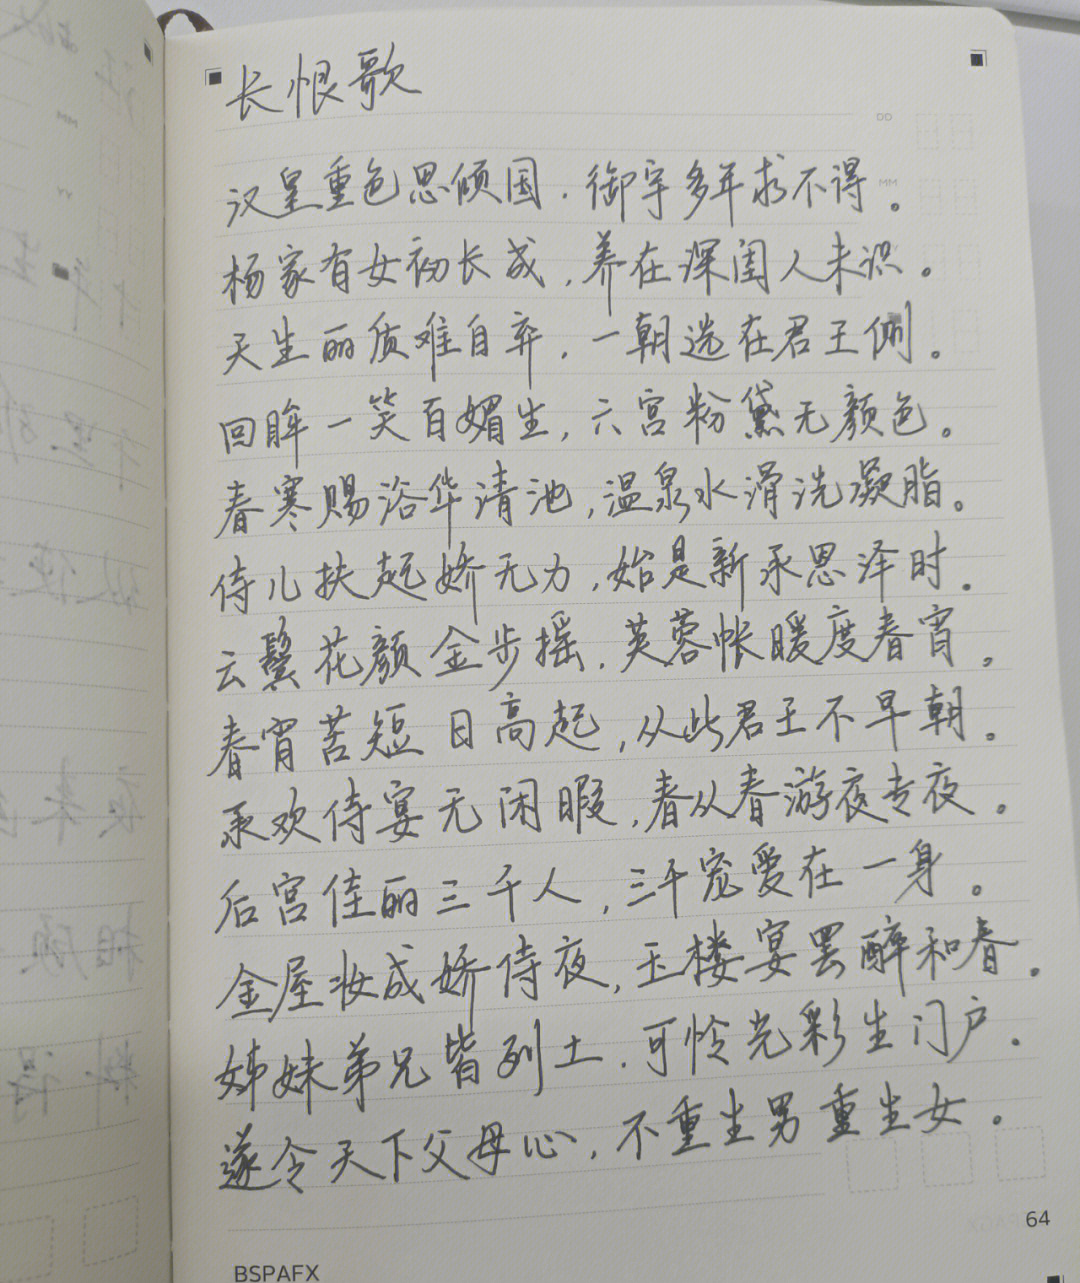 长恨歌
DD
汉皇重色思倾国.御宇多年求不得。
MM
杨家有女初长成,养在深闺人未识。
天生丽质难自弃,一朝选在君王侧。
回眸一笑百媚生,六宫粉黛无颜色。
春寒赐浴华清池,温泉水滑洗凝脂。
侍儿扶起娇无力,始是新承恩泽时。
云鬓花颜金步摇,芙蓉帐暖度春宵。
春宵苦短日高起,从此君王不早朝。
承欢侍宴无闲暇,春从春游夜专夜。
后宫佳丽三千人,三千宠爱在一身。
金屋妆成娇侍夜,玉楼宴罢醉和春。
姊妹弟兄皆列土.可怜光彩生门户。
遂令天下父母心,不重生男重生女。
64
BSPAFX